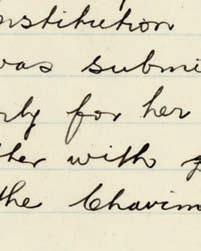 nstitution
was submi
rly for her
ther with
the Chairm